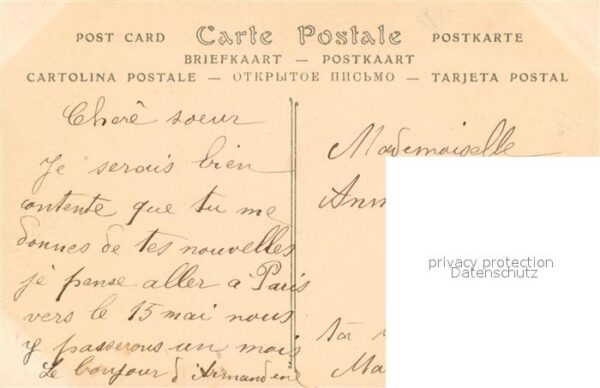 POST CARD Carte Postale POSTKARTE
BRIEFKAART — POSTKAART
CARTOLINA POSTALE — ОТКРЫТОЕ ПИСЬМО — TARJETA POSTAL
Cherè soeur
Je serais bien
contente que tu me
donnes de tes nouvelles
jé pense aller a Paris
vers le 15 mai nous
y passerons un mois
Le bonjour d'Armandine
Mademoiselle
Ann
ta
Ma
privacy protection
Datenschutz